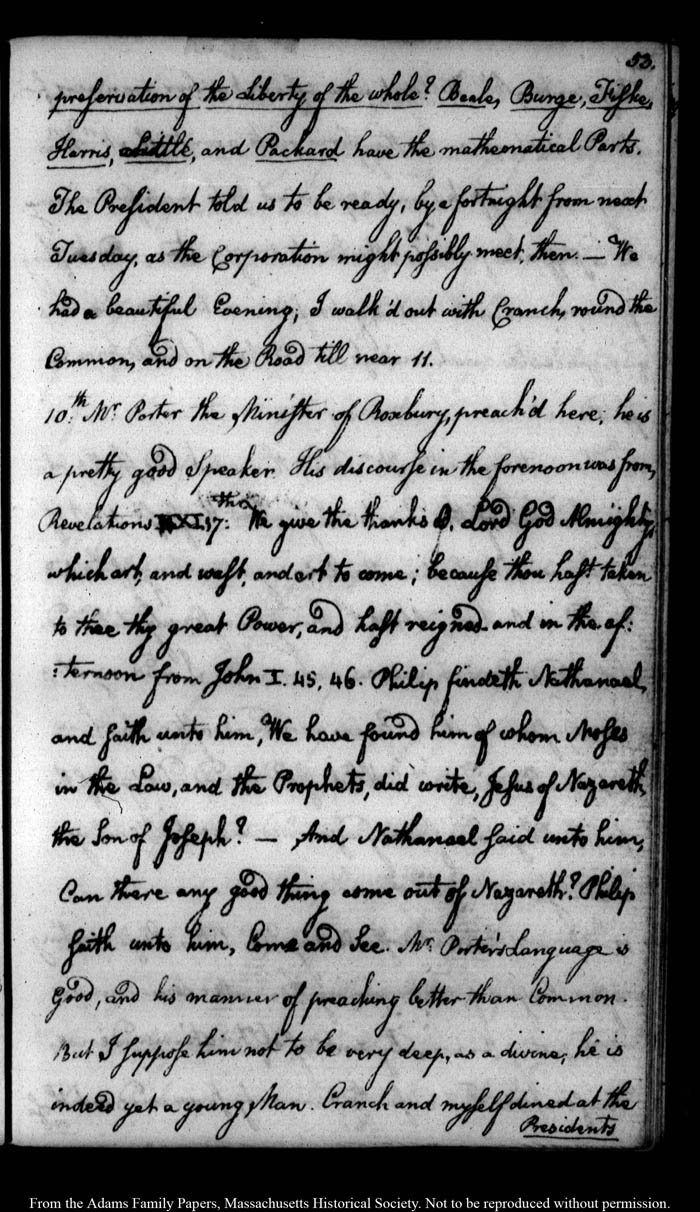 53.
preservation of the Liberty of the whole? Beale, Burge, Fiske,
Harris, Little, and Packard have the mathematical Parts.
The President told us to be ready, by a fortnight from next
Tuesday, as the Corporation might possibly meet, then. — We
had a beautiful Evening; I walk'd out with Cranch, round the
Common, and on the Road till near 11.
10.th Mr. Porter the Minister of Roxbury, preach'd here; he is
a pretty good Speaker. His discourse in the forenoon was from,
Revelations XI. 17.th: We give the thanks O, Lord God Almighty,
which art, and wast, and art to come; because thou hast taken
to thee thy great Power, and hast reigned. and in the af:
:ternoon from John I. 45, 46. Philip findeth Nathanael,
and saith unto him, We have found him of whom Moses
in the Law, and the Prophets, did write, Jesus of Nazareth,
the Son of Joseph? — And Nathanael said unto him,
Can there any good thing come out of Nazareth? Philip
saith unto him, Come and See. Mr. Porter's Language is
Good, and his manner of preaching better than Common.
But I suppose him not to be very deep, as a divine; he is
indeed yet a young Man. Cranch and myself dined at the
Presidents
From the Adams Family Papers, Massachusetts Historical Society. Not to be reproduced without permission.